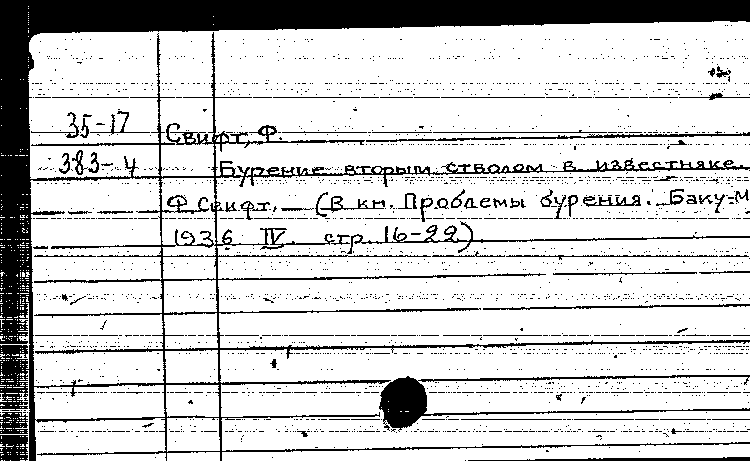 35-17 Свифт, Ф.
383-4 Бурение вторым стволом в известняке.
Ф. Свифт. — (В кн. Проблемы бурения. Баку-М
1936 IV. стр. 16-22).